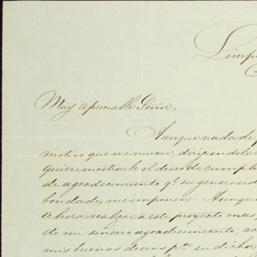 Muy apreciable Señor,
Aunque nada de p
motivo que me mueve, dirigiendole
quiero mostrarle el deseo de cumplir
de agradecimiento qe. su generosid
bondades, me imponen. Aunque
Ahora realze a este proyecto mas,
de mi sincero agradecimiento, ac
mis buenos deseos pr. su dicha